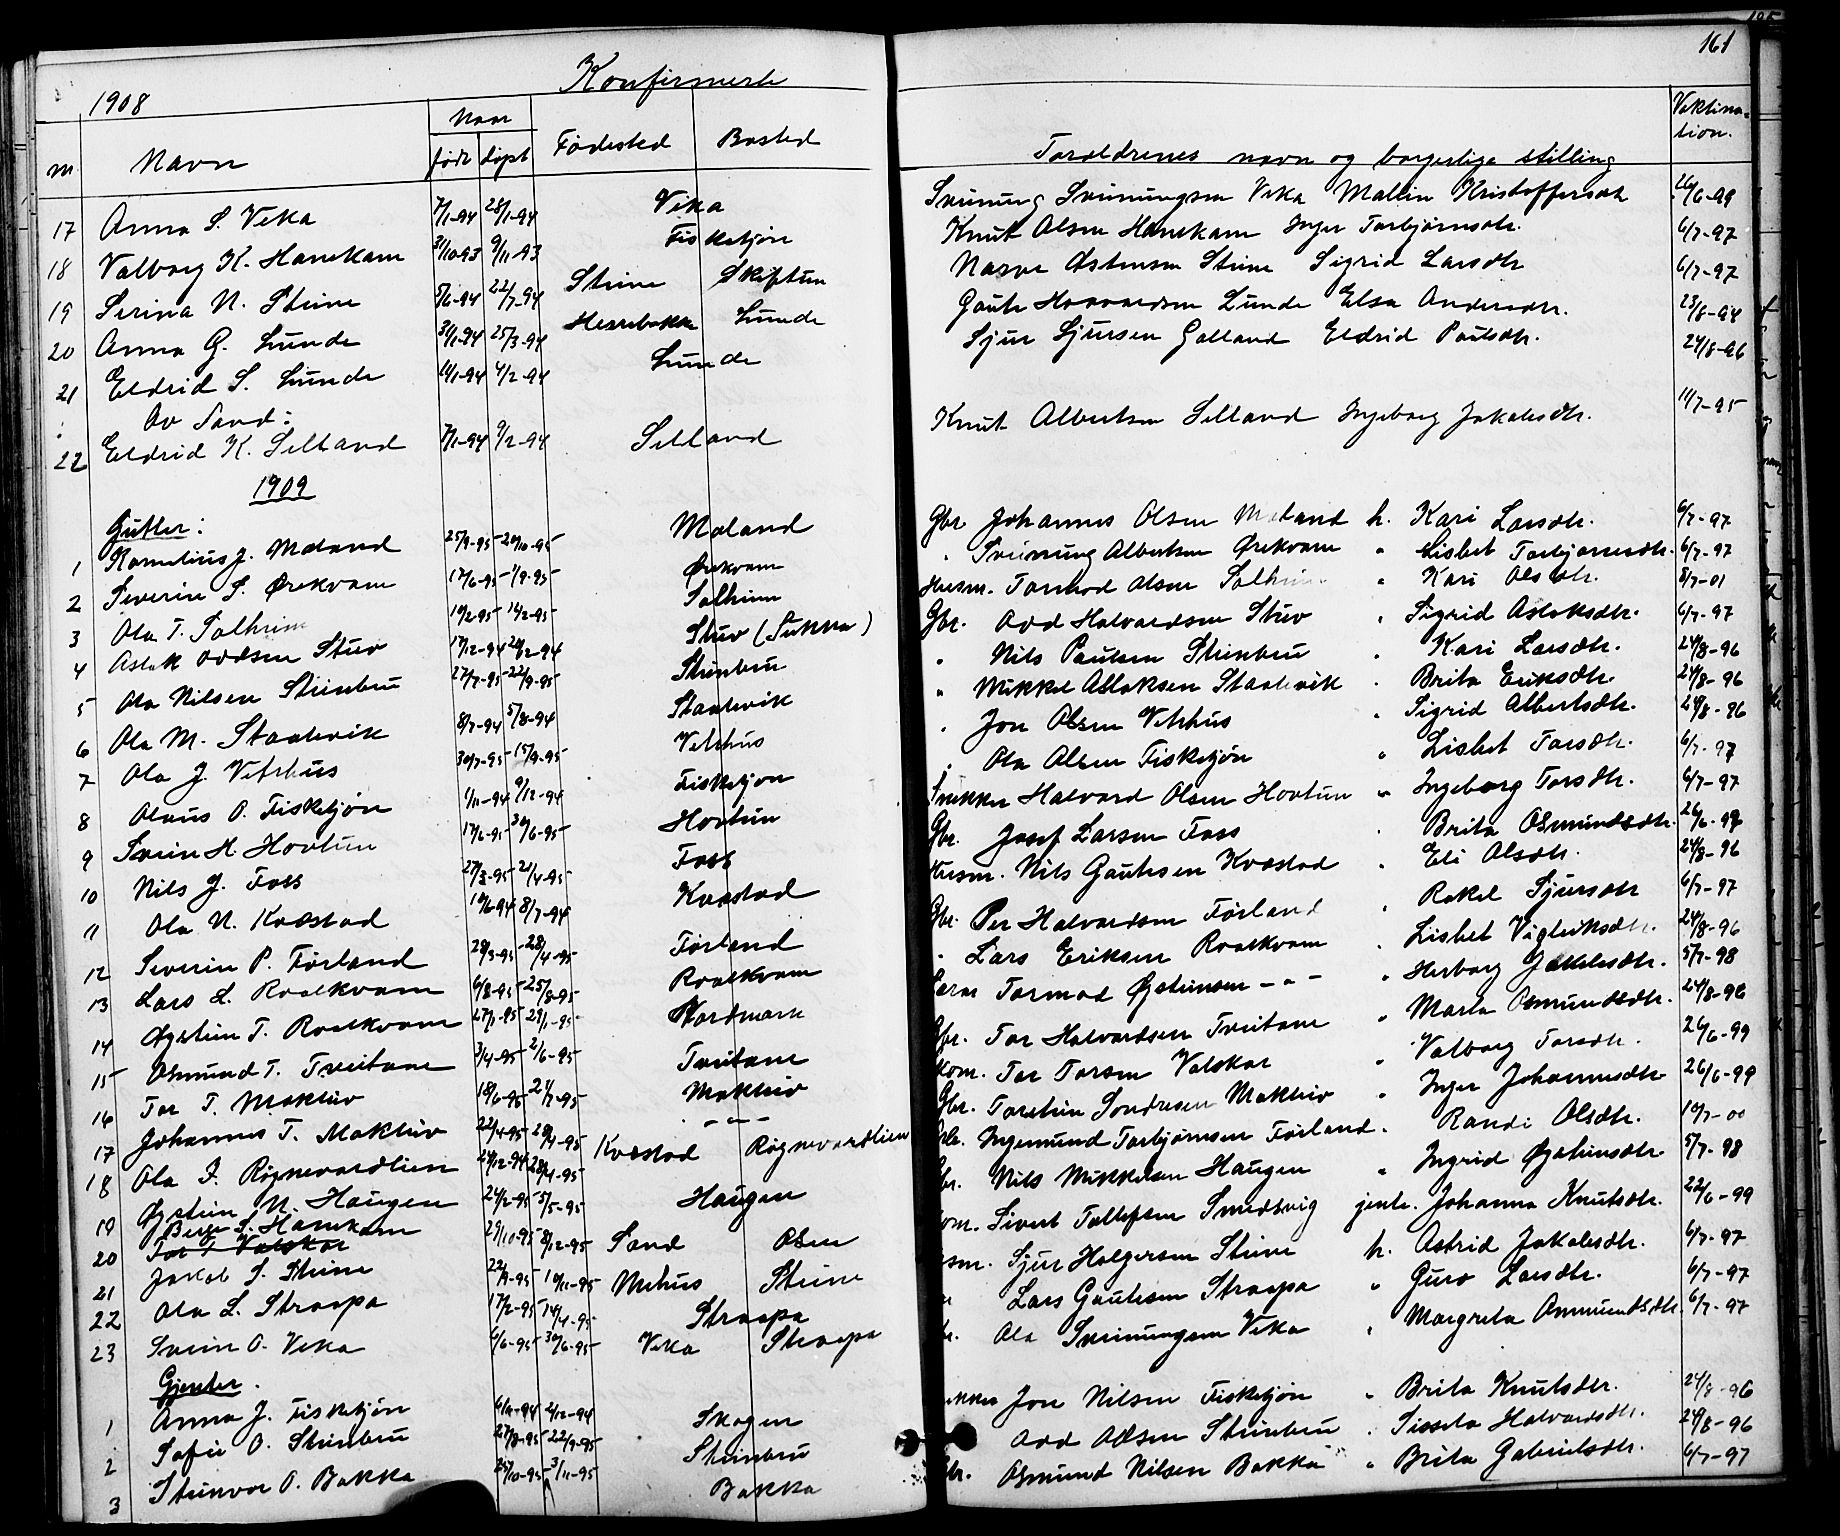 161
Konfirmerte
1908
Naar
Vaktina-
tion.
nr Navn født døpt Fødested Bosted Foreldrenes navn og borgerlige stilling
17 Anna S. Veka 7/1-94 28/1-94 Veka Sveinung Sveinungsen Veka Mallin Kristoffersdtr 26/6-99
18 Valborg K. Hanekam 31/10-93 9/11-93 Fisketjøn Knut Olsen Hanekam Inger Torbjørnsdtr. 6/7-97
19 Serina N. Steine 5/6-94 22/7-94 Steine Skiftun Østensen Steine Sigrid Larsdtr 6/7-97
20 Anna G. Lunde 31/1-94 25/3-94 Herrebakka Lunde Gaute Haavardsen Lunde Elsa Andersdtr. 23/8-94
21 Eldrid S. Lunde 14/1-94 4/2-94 Lunde Sjur Sjursen Galland Eldrid Paulsdtr. 24/8-96
Av Sand:
22 Eldrid K. Selland 7/1-94 9/2-94 Selland Knut Albertsen Selland Ingeborg Jakobsdtr. 11/7-95
1909
Gutter:
1 Kornelius J. Moland 25/9-95 20/10-95 Moland Gbr. Johannes Olsen Moland h. Kari Larsdtr. 6/7-97
2 Severin S. Ørekvam 12/6-95 1/9-95 Ørekvam " Sveinung Albertsen Ørekvam " Lisbet Torbjørnsdtr. 6/7-97
3 Ola T. Solheim 10/2-95 14/2-95 Solheim Husm. Tormod Olsen Solheim " Kari Olsdtr. 8/7-01
4 Aslak Oddsen Stuv 17/12-94 26/12-94 Stuv (Sukka) Gbr. Odd Halvardsen Stuv " Sigrid Aslaksdtr. 6/7-97
5 Ola Nilsen Steinbru 27/7-95 22/9-95 Steinbru " Nils Paulsen Steinbru " Kari Larsdtr. 24/8-96
6 Ola M. Staalevik 8/7-94 5/8-94 Staalevik " Mikkel Aslaksen Staalevik " Brita Eriksdtr. 24/8-96
7 Ola J. Vetrhus 30/7-95 15/9-95 Vetrhus " Jon Olsen Vetrhus " Sigrid Albertsdtr. 24/8-96
8 Olaus O. Fisketjøn 1/11-94 9/12-94 Fisketjøn " Ola Olsen Fisketjøn " Lisbet Torsdtr. 6/7-97
9 Svein H. Hovtun 12/6-95 30/6-95 Hovtun Snekker Halvard Olsen Hovtun " Ingeborg Torsdtr. 6/7-97
10 Nils J. Foss 27/3-95 21/4-95 Foss Gbr. Josef Larsen Foss " Brita Osmundsdtr. 26/6-99
11 Ola N. Kvæstad 10/6-94 8/7-94 Kvæstad Husm. Nils Gautesen Kvæstad " Eli Olsdtr. 24/8-96
12 Severin P. Førland 29/3-95 28/4-95 Førland Gbr. Per Halvardsen Førland " Rakel Sjursdtr 6/7-97
13 Lars L. Roalkvam 6/8-95 25/8-95 Roalkvam " Lars Eriksen Roalkvam " Lisbet Vigleiksdtr. 24/8-96
14 Øystein T. Roalkvam 27/1-95 29/1-95 Nordmork Tormod Øysteinsen -"- " Herborg Jakobsdtr. 5/7-98
15 Osmund T. Tveitane 3/4-95 2/6-95 Tveitane Gbr. Tor Halvardsen Tveitane " Marta Osmundsdtr. 24/8-96
16 Tor T. Mokleiv 18/6-95 21/7-95 Mokleiv Tor Torsen Valskar " Valborg Torsdtr. 26/6-99
17 Johannes T. Mokleiv 22/4-95 28/4-95 -"- Gbr. Torstein Sondresen Mokleiv " Inger Johannesdtr 26/6-99
18 Ola I. Røgnevardlien 24/12-94 28/4-95 Kvæstad Røgnevardlien Ingemund Torbjørnsen Førland " Randi Olsdtr. 10/7-00
19 Øystein N. Haugen 24/2-95 5/5-95 Haugen Gbr. Nils Mikkelsen Haugen " Ingrid Øysteinsdtr. 5/7-98
20 Berge S. Hanekam Tor T Valskar 29/10-95 8/12-95 Sand Osen Sivert Tollefsen Smedsvig jente. Johanna Knutsdtr. 22/6-99
21 Jakob S. Steine 22/9-95 10/11-95 Nerhus Steine Sjur Holgersen Steine h. Astrid Jakobsdtr. 6/7-97
22 Ola L. Straapa 17/2-95 14/4-95 Straapa Lars Gautesen Straapa " Guro Larsdtr. 6/7-97
23 Svein O. Veka 6/6-95 30/6-95 Veka Straapa Ola Sveinungsen Veka " Margreta Osmundsdtr. 6/7-97
Gjenter.
1 Anna J. Fisketjøn 6/9-94 2/12-94 Skogen Jon Nilsen Fisketjøn " Brita Knutsdtr. 24/8-96
2 Sofie O. Steinbru 27/8-95 22/9-95 Steinbru Odd Olsen Steinbru " Sissela Halvardsdtr. 24/8-96
3 Steinvor O. Bakka 25/10-95 3/11-95 Bakka Gbr. Osmund Nilsen Bakka " Brita Gabrielsdtr. 6/7-97